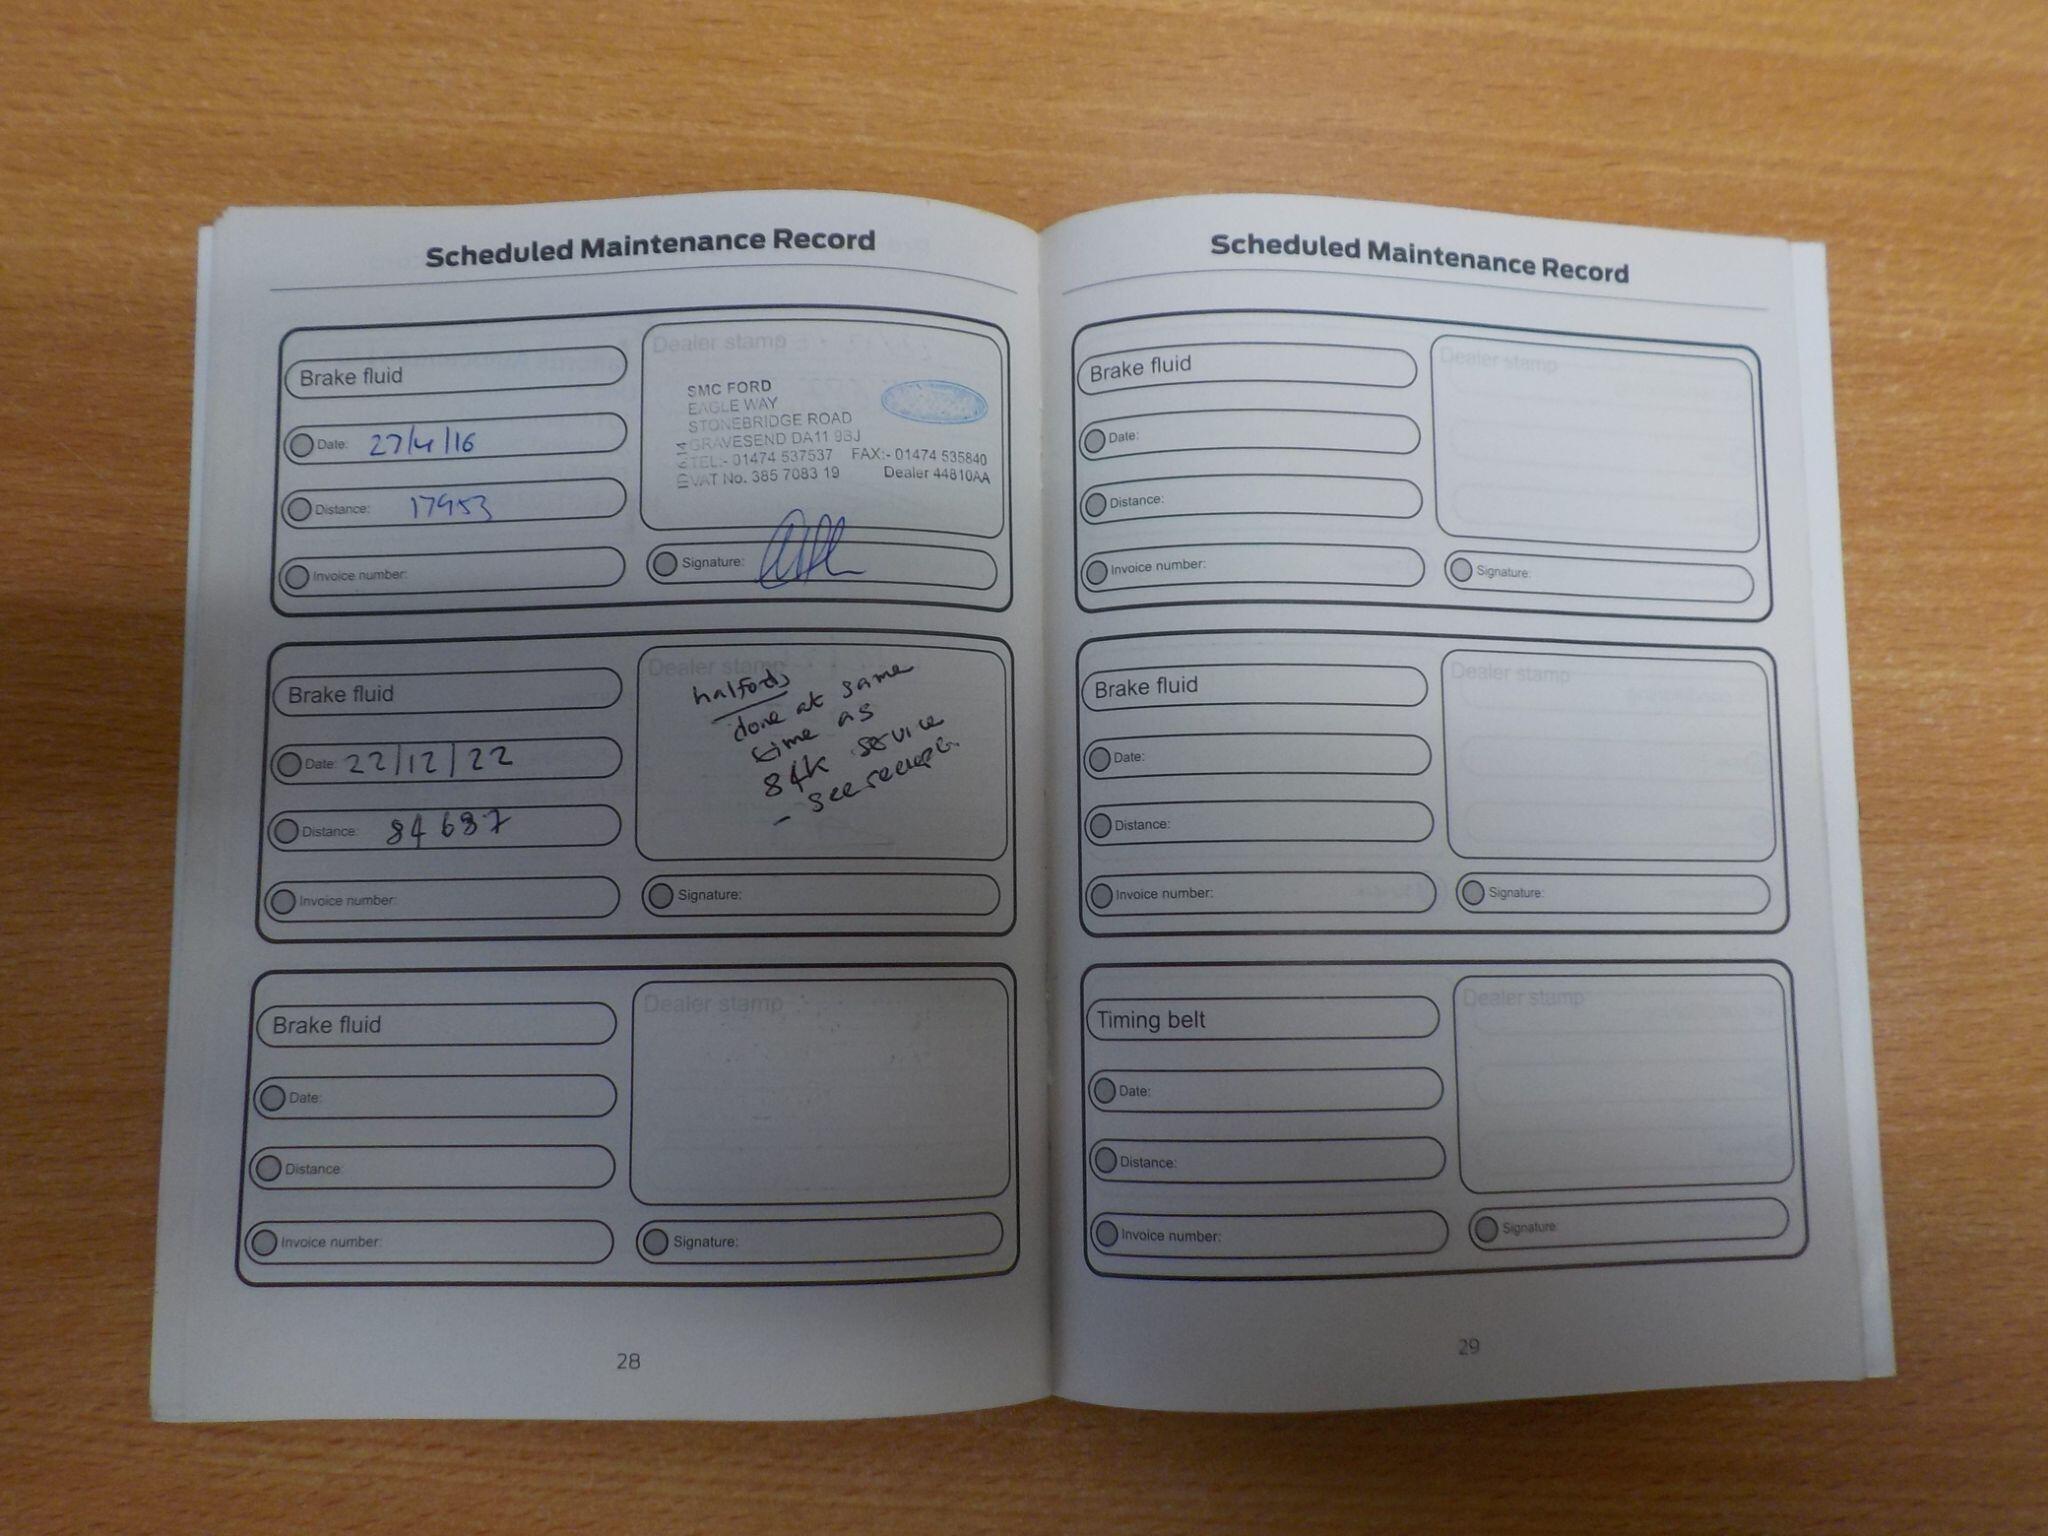 Scheduled Maintenance Record
Brake fluid
Date: 27/4/16
Distance: 17953
Invoice number:
Dealer stamp
SMC FORD
EAGLE WAY
STONEBRIDGE ROAD
GRAVESEND DA11 9BJ
TEL:- 01474 537537 FAX:- 01474 535840
VAT No. 385 7083 19 Dealer 44810AA
Signature:
Brake fluid
Date: 22/12/22
Distance: 84687
Invoice number:
Dealer stamp
halfords
done at same
time as
84k service
- see receipt
Signature:
Brake fluid
Date:
Distance:
Invoice number:
Dealer stamp
Signature:
28
Scheduled Maintenance Record
Brake fluid
Date:
Distance:
Invoice number:
Dealer stamp
Signature:
Brake fluid
Date:
Distance:
Invoice number:
Dealer stamp
Signature:
Timing belt
Date:
Distance:
Invoice number:
Dealer stamp
Signature:
29